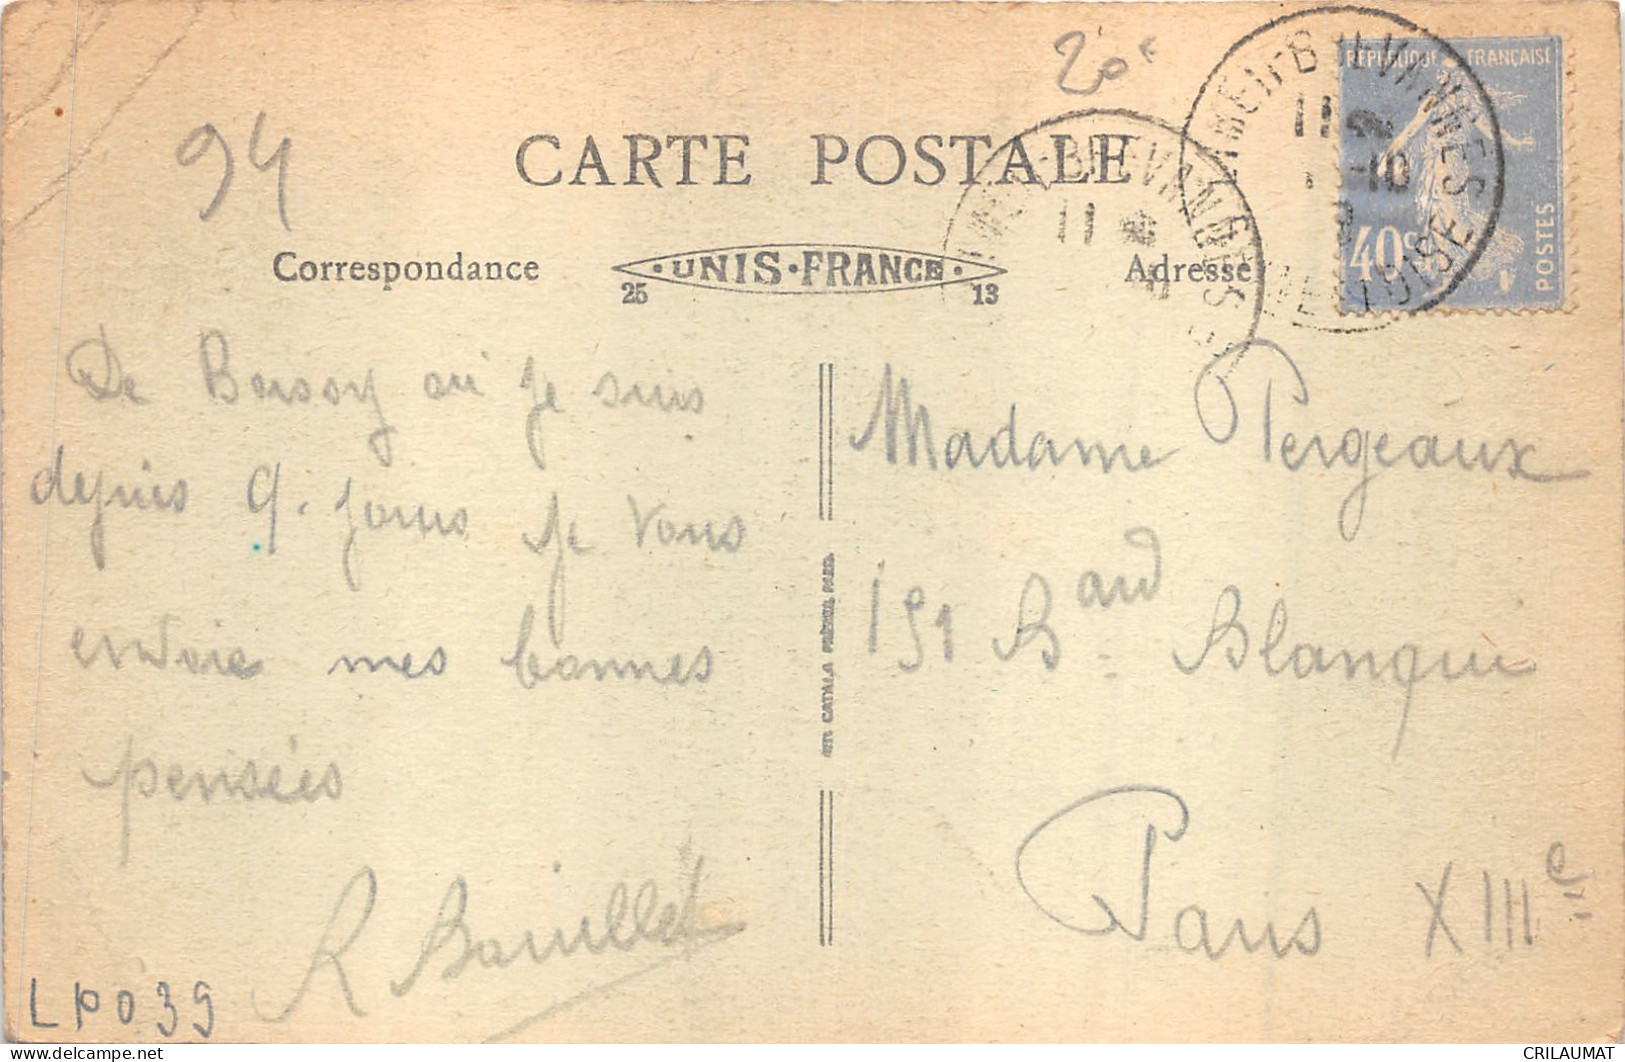 20€
94
CARTE POSTALE
RÉPUBLIQUE FRANÇAISE
40c
POSTES
11
-10
Correspondance
UNIS-FRANCE
25
13
Adresse
De Boissy où je suis
depuis 9. jours je vous
envoie mes bonnes
pensées
Madame Pergeaux
151 Bard Blanqui
Paris XIIIe
LP039
CRILAUMAT